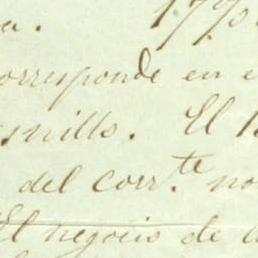 corresponde en
snillo. El
del corr.te no
El negocio de